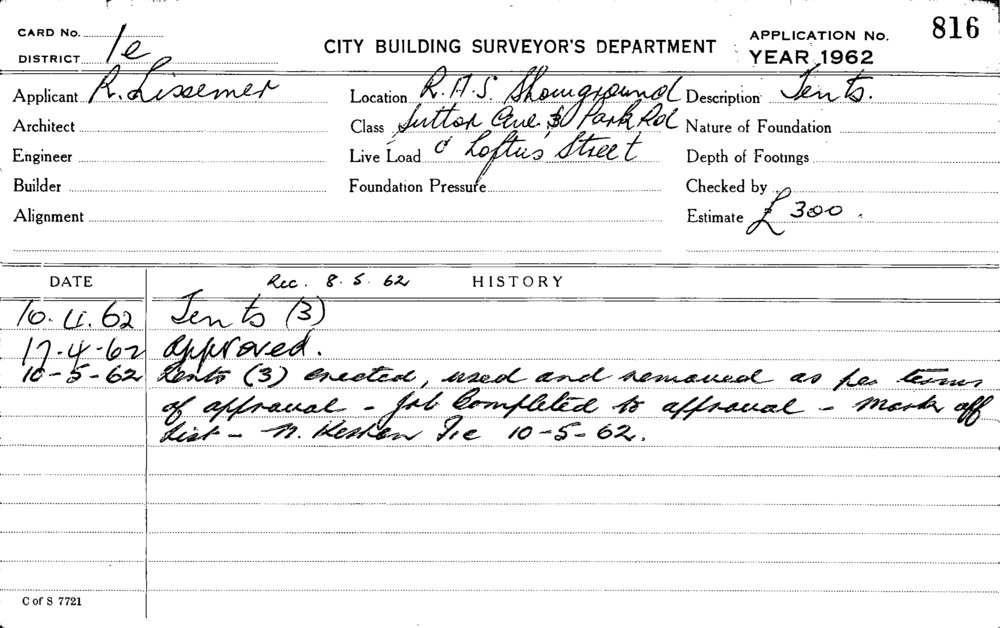 CARD No.
DISTRICT 1e
CITY BUILDING SURVEYOR'S DEPARTMENT
APPLICATION No. 816
YEAR 1962
Applicant R. Lissemer Location R.A.S. Showground Description Tents.
Architect Class Sutton Ave. & Park Rd Nature of Foundation
Engineer Live Load & Loftus Street Depth of Footings
Builder Foundation Pressure Checked by
Alignment Estimate £ 300.
DATE Rec. 8.5.62 HISTORY
10.4.62 Tents (3)
17-4-62 Approved.
10-5-62 Tents (3) erected, used and removed as per terms
of approval - Job Completed to approval - Mark off
List - N. 10-5-62.
C of S 7721